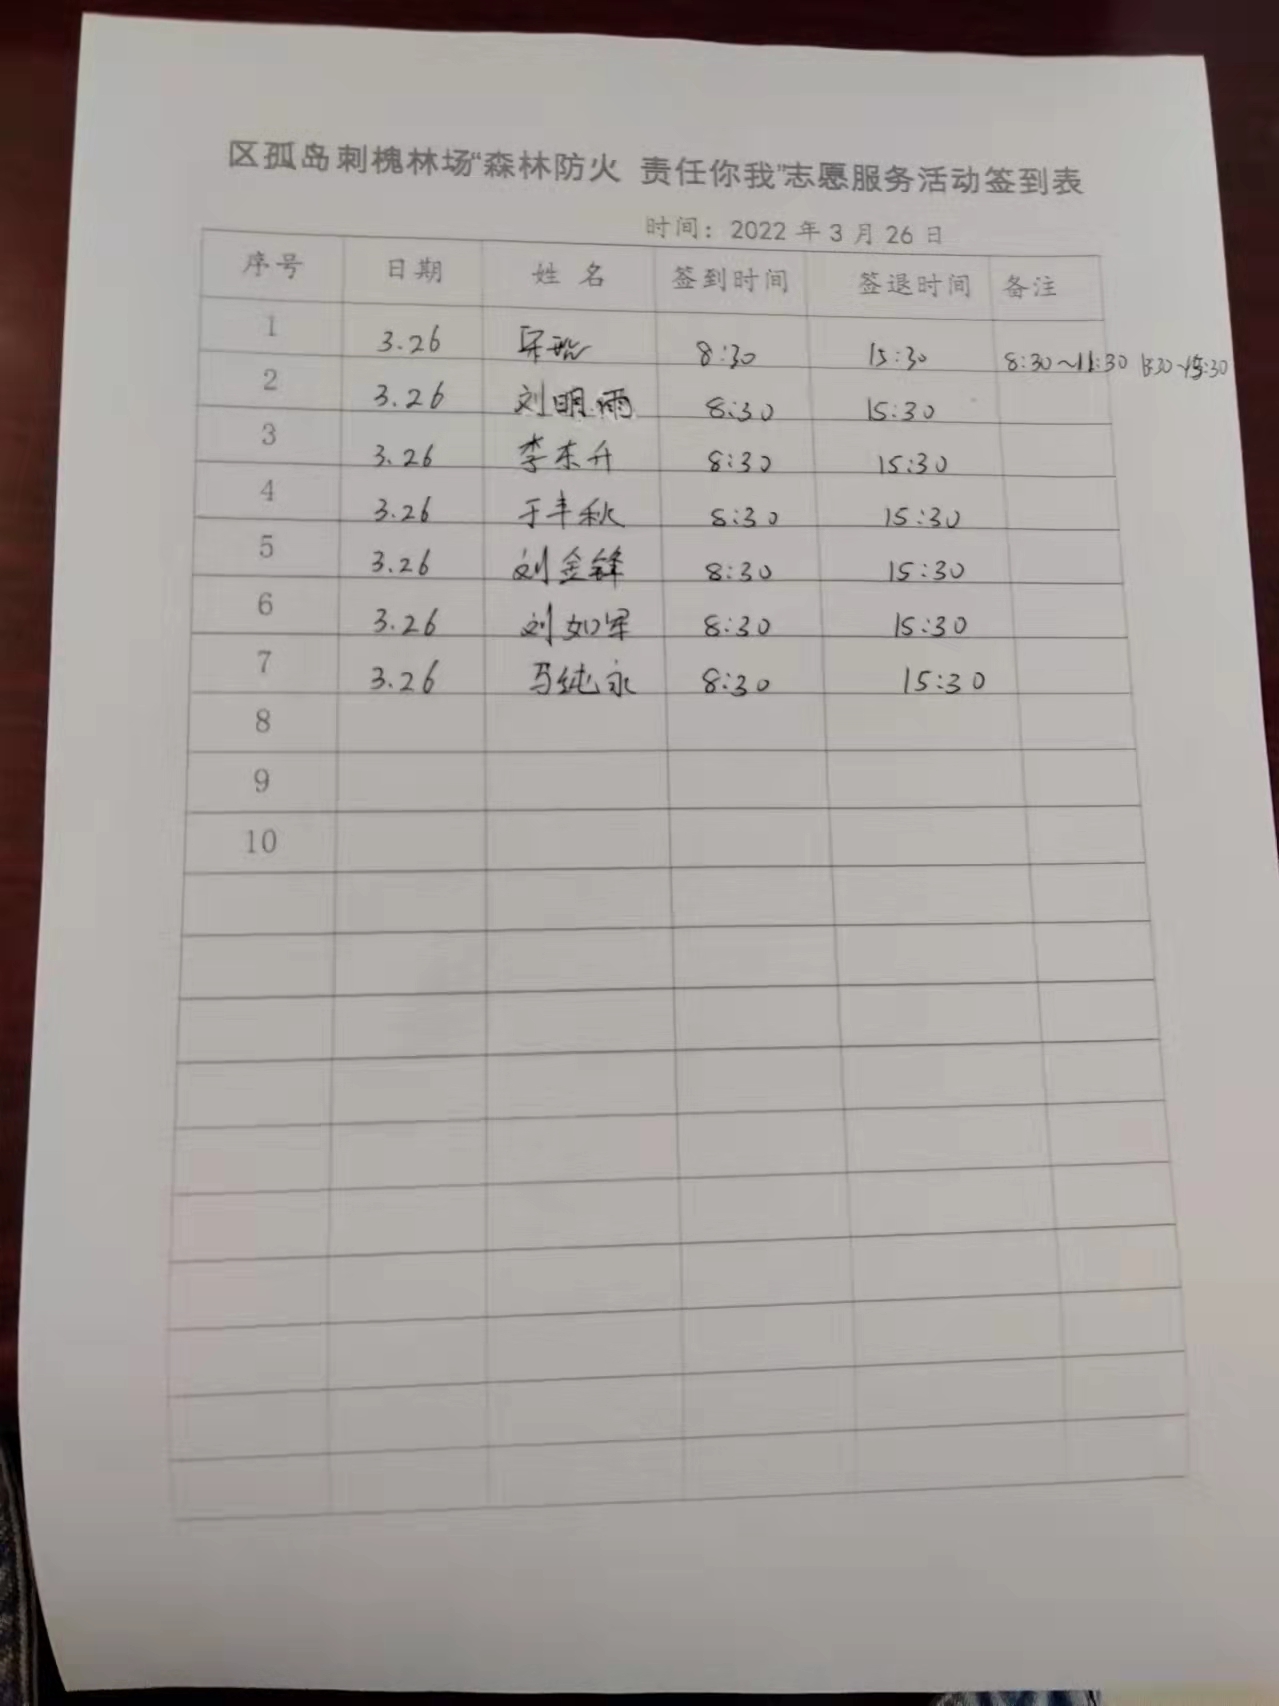 区孤岛刺槐林场“森林防火 责任你我”志愿服务活动签到表
时间：2022 年 3 月 26 日
序号 日期 姓 名 签到时间 签退时间 备注
1 3.26 8:30 15:30 8:30~11:30
2 3.26 刘明雨 8:30 15:30
3 3.26 李东升 8:30 15:30
4 3.26 于丰秋 8:30 15:30
5 3.26 刘金锋 8:30 15:30
6 3.26 刘如军 8:30 15:30
7 3.26 马纯永 8:30 15:30
8
9
10